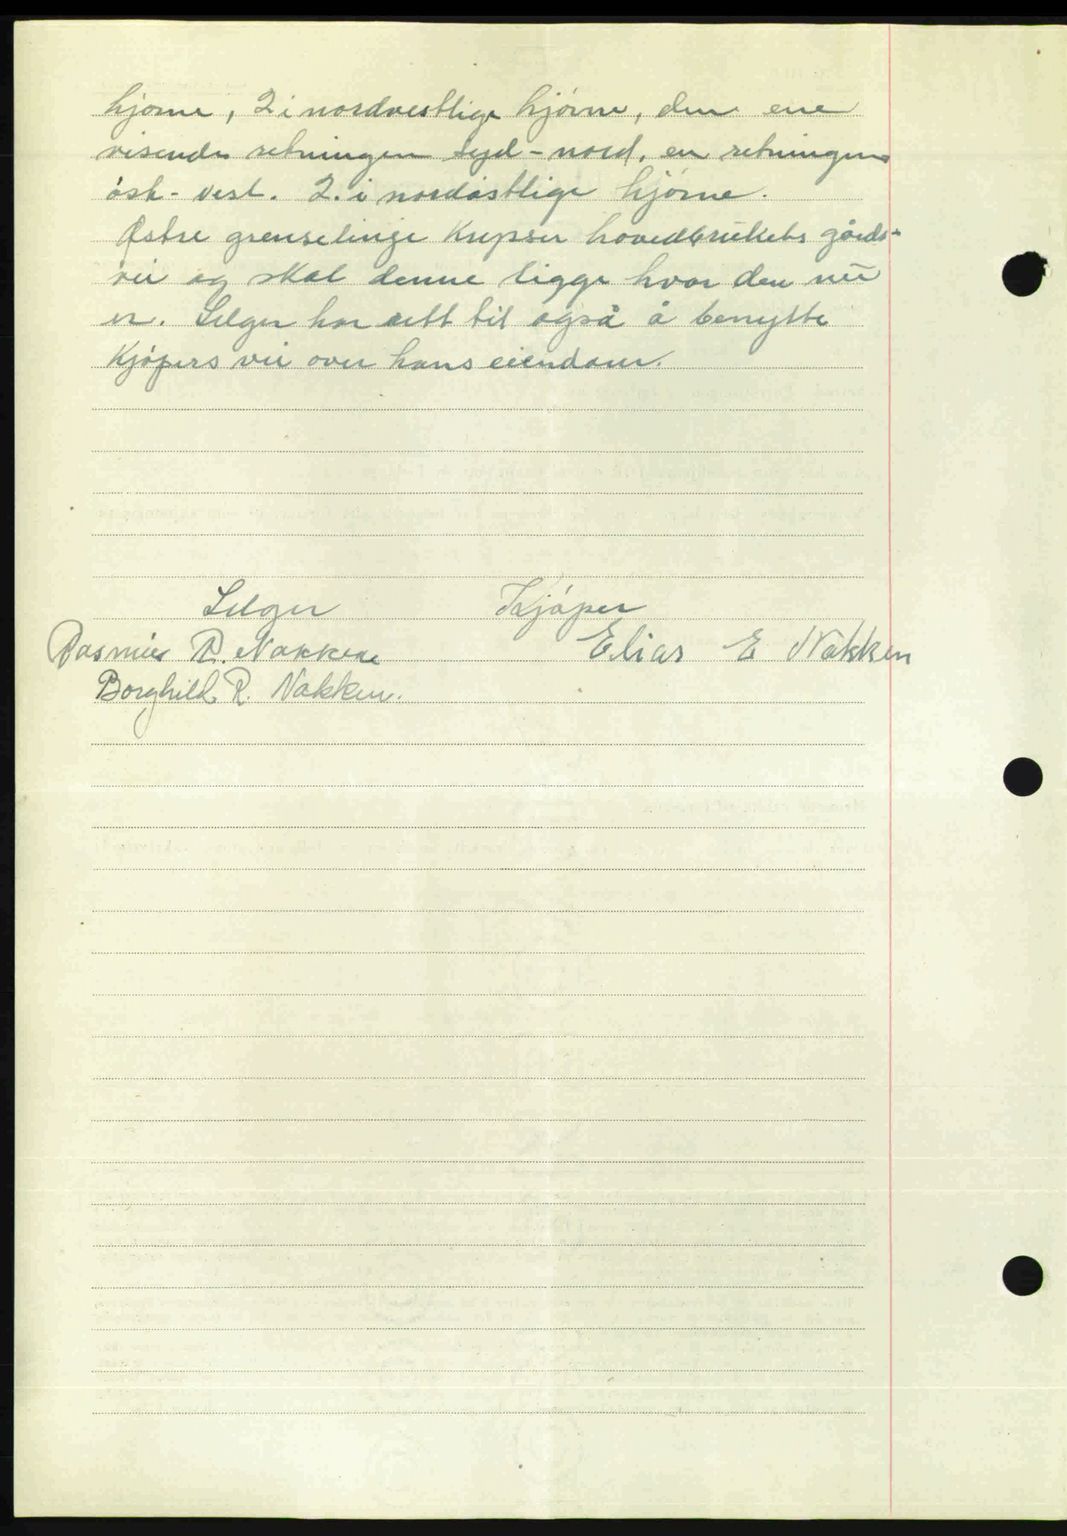 hjørne, 2 i nordvestlige hjørne, den ene
visende retningen syd - nord, en retningen
øst - vest. 2. i nordøstlige hjørne.
Østre grenselinje krysser hovedbrukets gårds-
vei og skal denne ligge hvor den nu
er. Selger har rett til også å benytte
kjøpers vei over hans eiendom.
Selger Kjøper
Rasmus R. Nakken Elias E Nakken
Borghild R. Nakken.